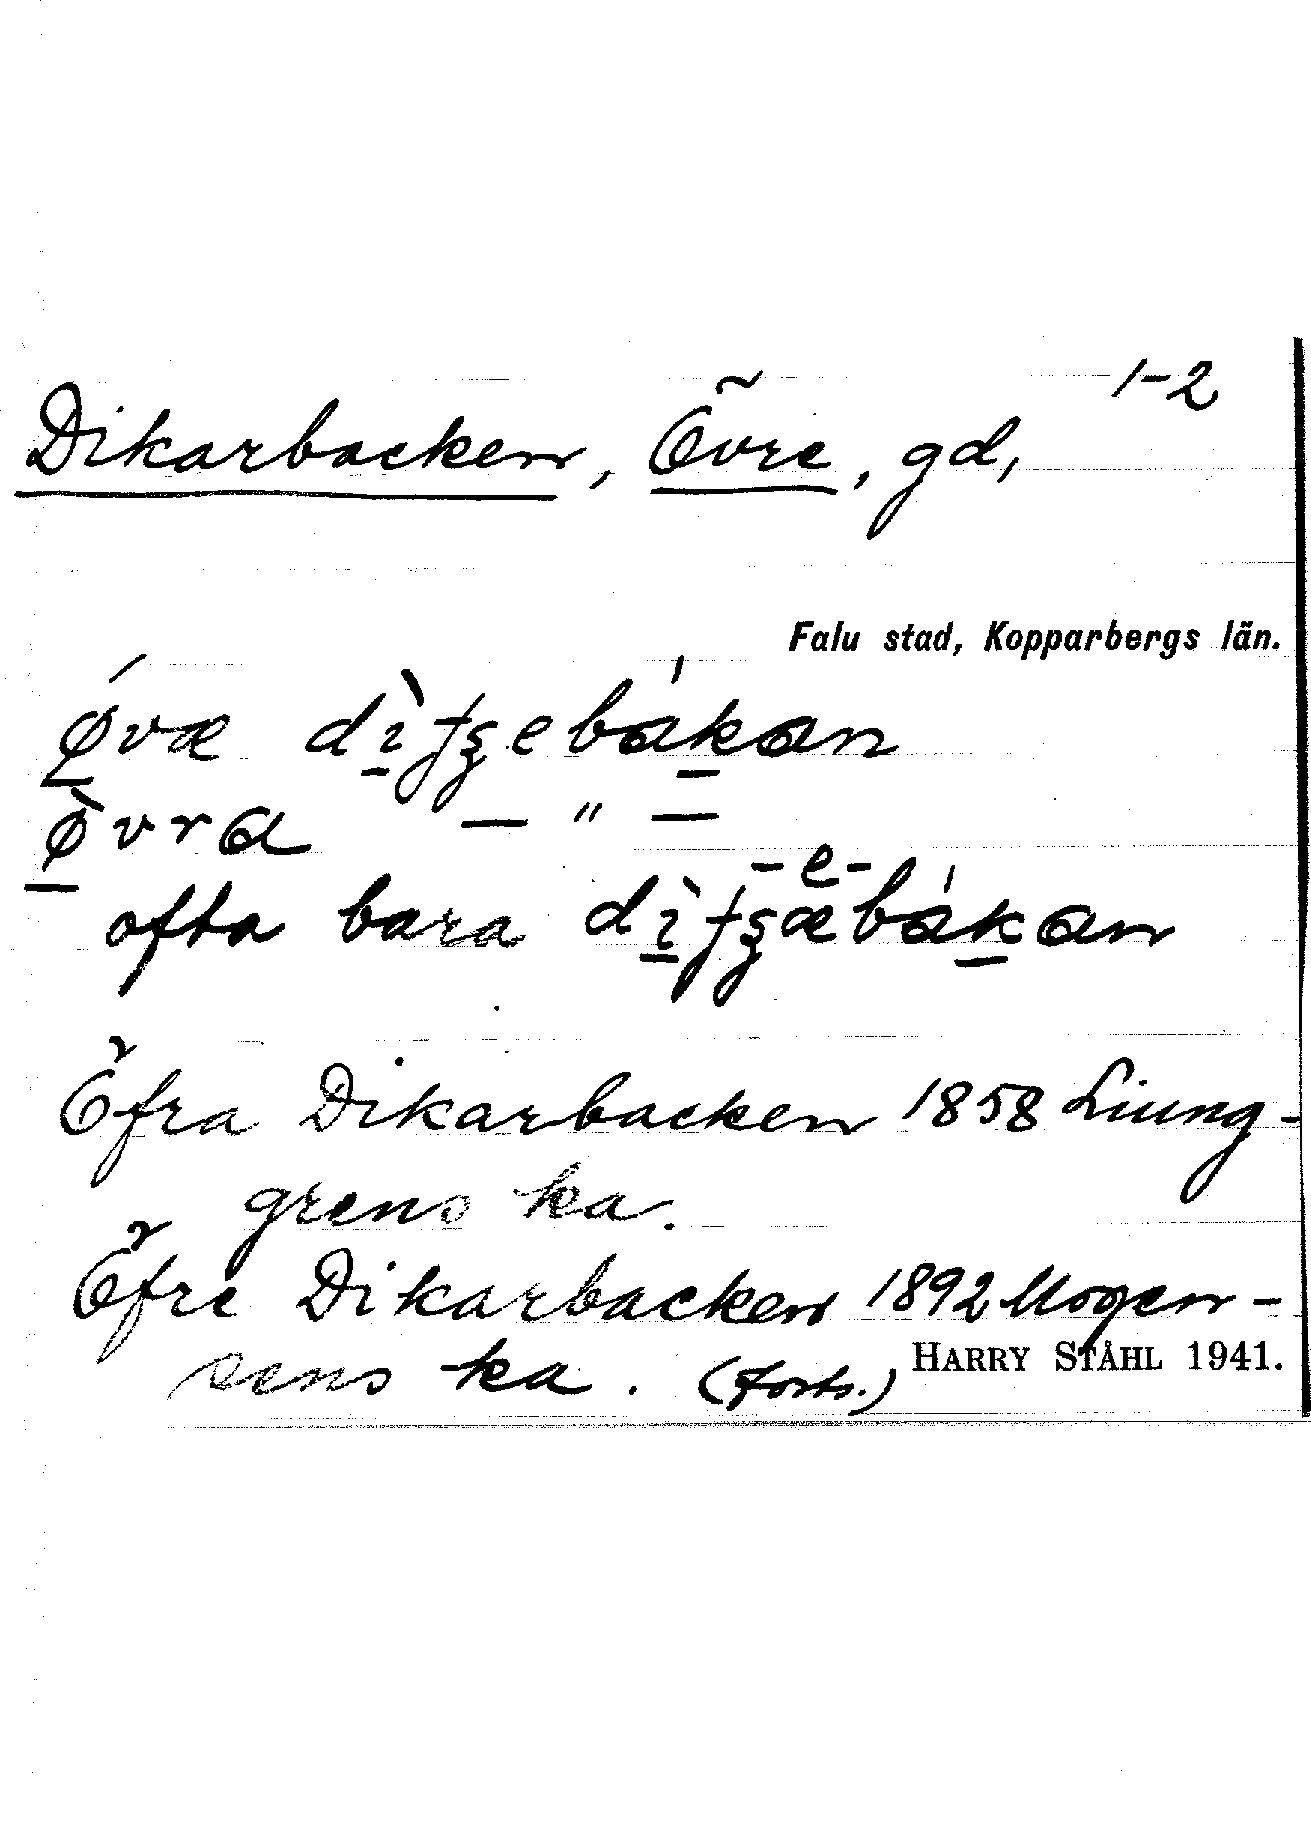 1-2
Dikarbacken, Övre, gd,
Falu stad, Kopparbergs län.
ǿvæ
ø̀vra — " —
-e-
ofta bara
Öfra Dikarbacken 1858 Liung-
grens ka.
Öfre Dikarbacken 1892 Mogen-
sens ka. (forts.)
HARRY STÅHL 1941.